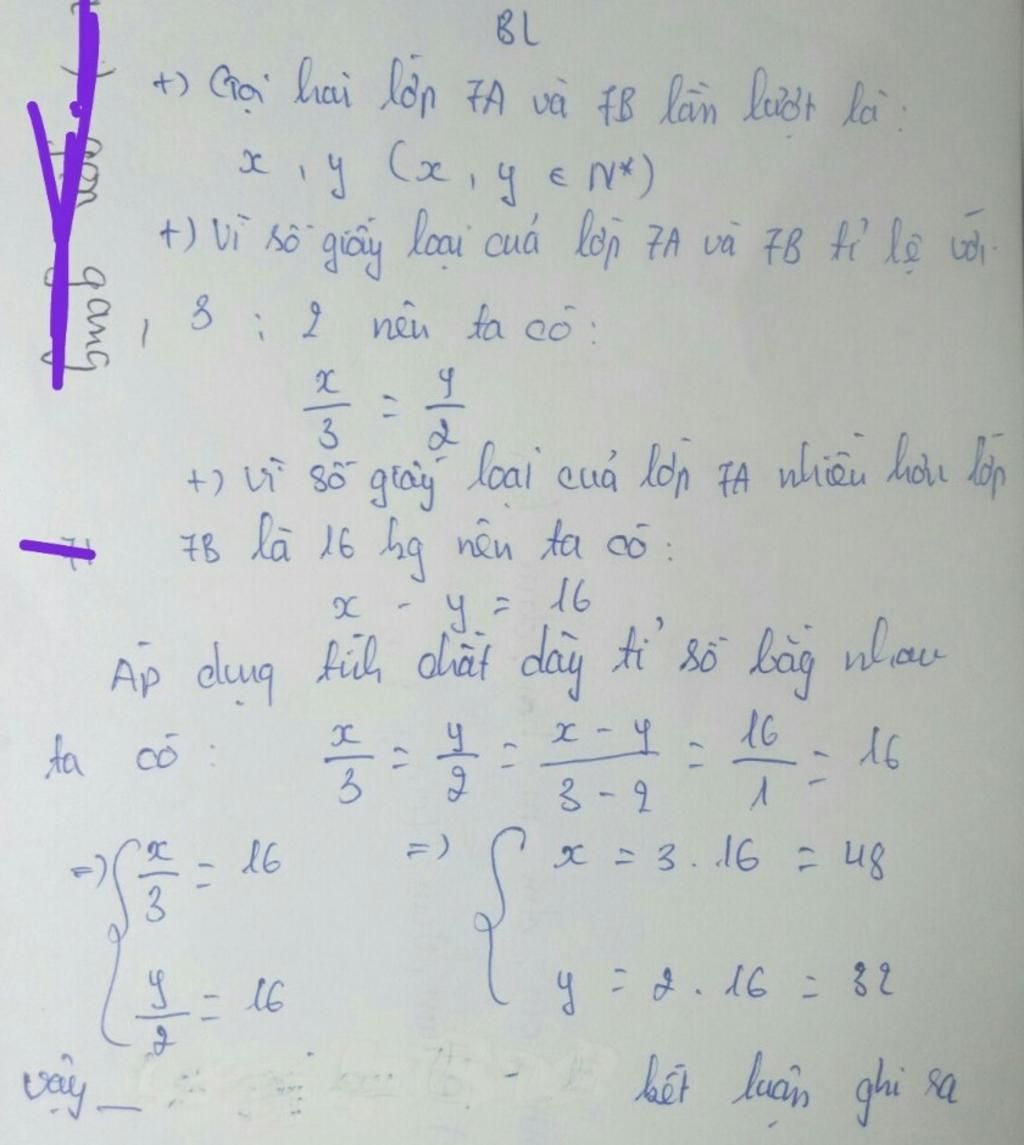 BL
+) Gọi hai lớp 7A và 7B lần lượt là:
x, y (x, y ∈ N*)
+) Vì số giấy loại cuả lớp 7A và 7B tỉ lệ với
3 ; 2 nên ta có:
x/3 = y/2
+) Vì số giấy loại cuả lớp 7A nhiều hơn lớp
7B là 16 kg nên ta có:
x - y = 16
Áp dụng tích chất dãy tỉ số bằg nhau
ta có: x/3 = y/2 = (x - y)/(3 - 2) = 16/1 = 16
=> { x/3 = 16 => { x = 3 . 16 = 48
y/2 = 16 y = 2 . 16 = 32
vậy _ kết luận ghi sa
gang